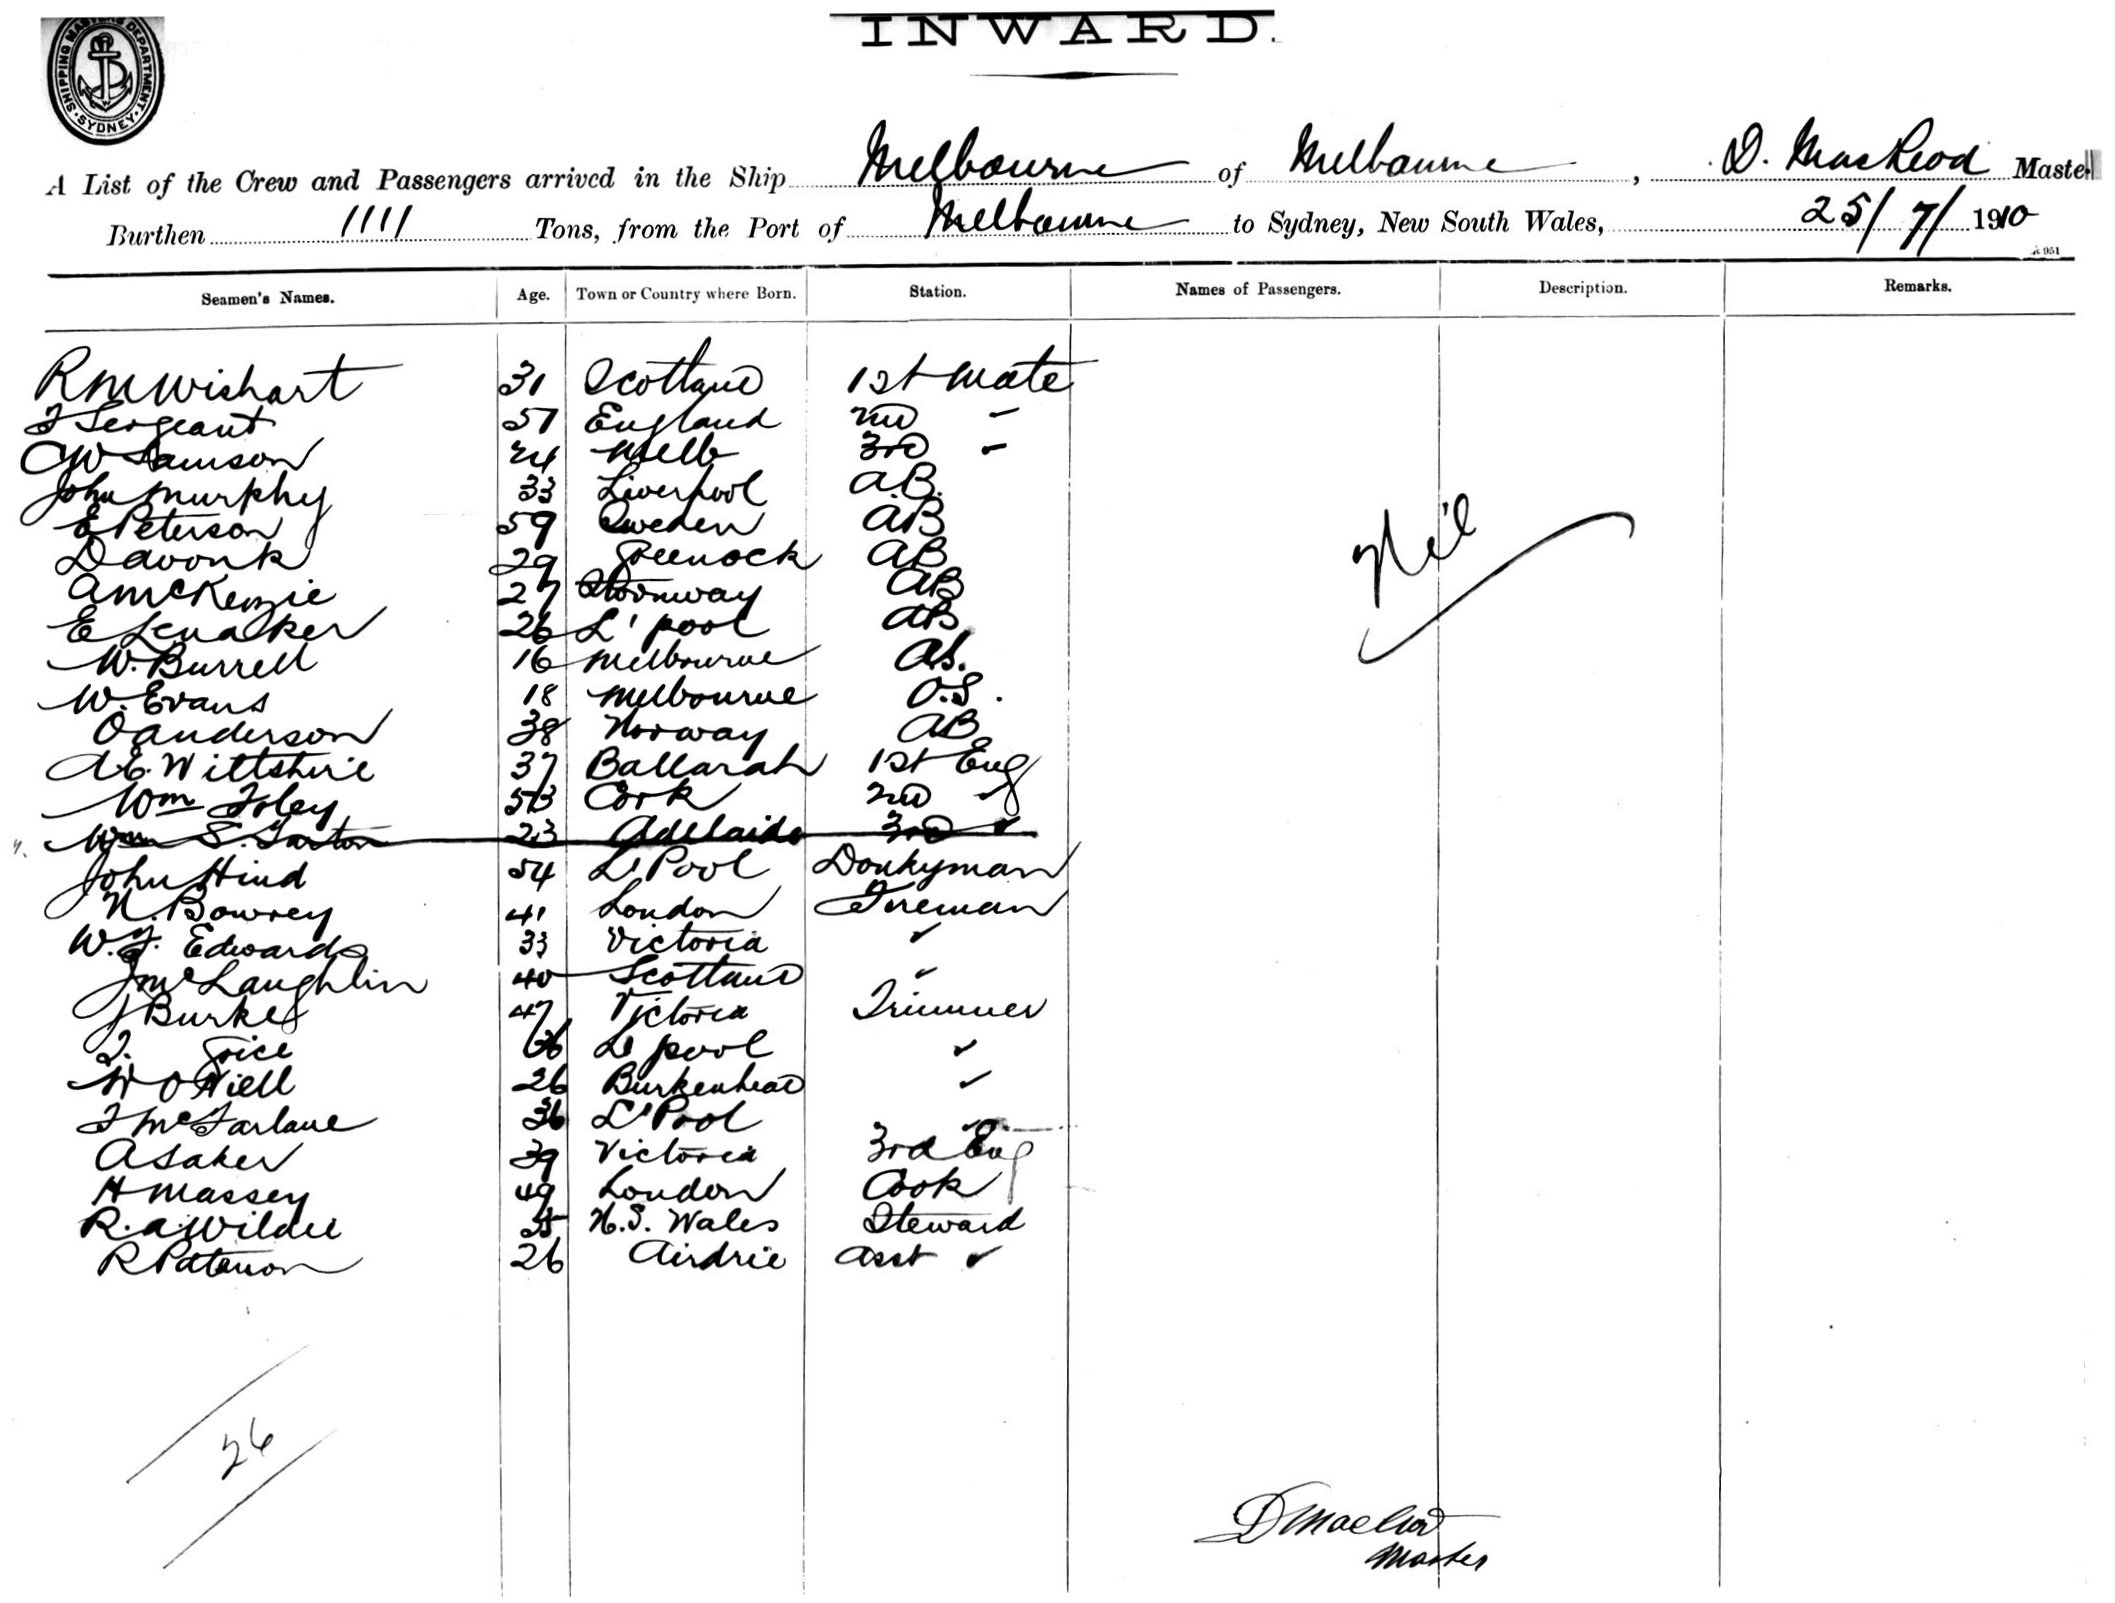 SHIPPING MASTERS DEPARTMENT. SYDNEY.
INWARD.
A List of the Crew and Passengers arrived in the Ship Melbourne of Melbourne, D. MacLeod Master
Burthen 1111 Tons, from the Port of Melbourne to Sydney, New South Wales, 25/7/1910
Seamen's Names. Age. Town or Country where Born. Station. Names of Passengers. Description. Remarks.
R M Wishart 31 Scotland 1st Mate
F Sergeant 57 England 2nd "
C W Samson 24 Melb 3rd "
John Murphy 33 Liverpool A.B.
E Peterson 59 Sweden AB
D avonk 29 Greenock AB
A McKenzie 27 Stornway AB
E Lenaker 26 L'pool AB
W. Burrell 16 Melbourne
W. Evans 18 Melbourne O.S.
O Anderson 38 Norway AB
A E. Wiltshire 37 Ballarah 1st Eng
Wm Foley 53 Cork 2nd "
Wm S. Garton 23 Adelaide 3rd "
John Hind 54 L'Pool Donkyman
N. Bowrey 41 London Fireman
W. J. Edwards 33 Victoria "
J McLaughlin 40 Scotland "
J Burke 47 Victoria Trimmer
T. Grice L'pool "
W O Niell 26 Burkenhead "
F McFarlane 36 L'Pool "
A Saker 39 Victoria 3rd Eng
H Massey 49 London Cook
R. A. Wildee N. S. Wales Steward
R Paterson 26 Airdrie Asst "
Nil
26
D MacLeod
Master